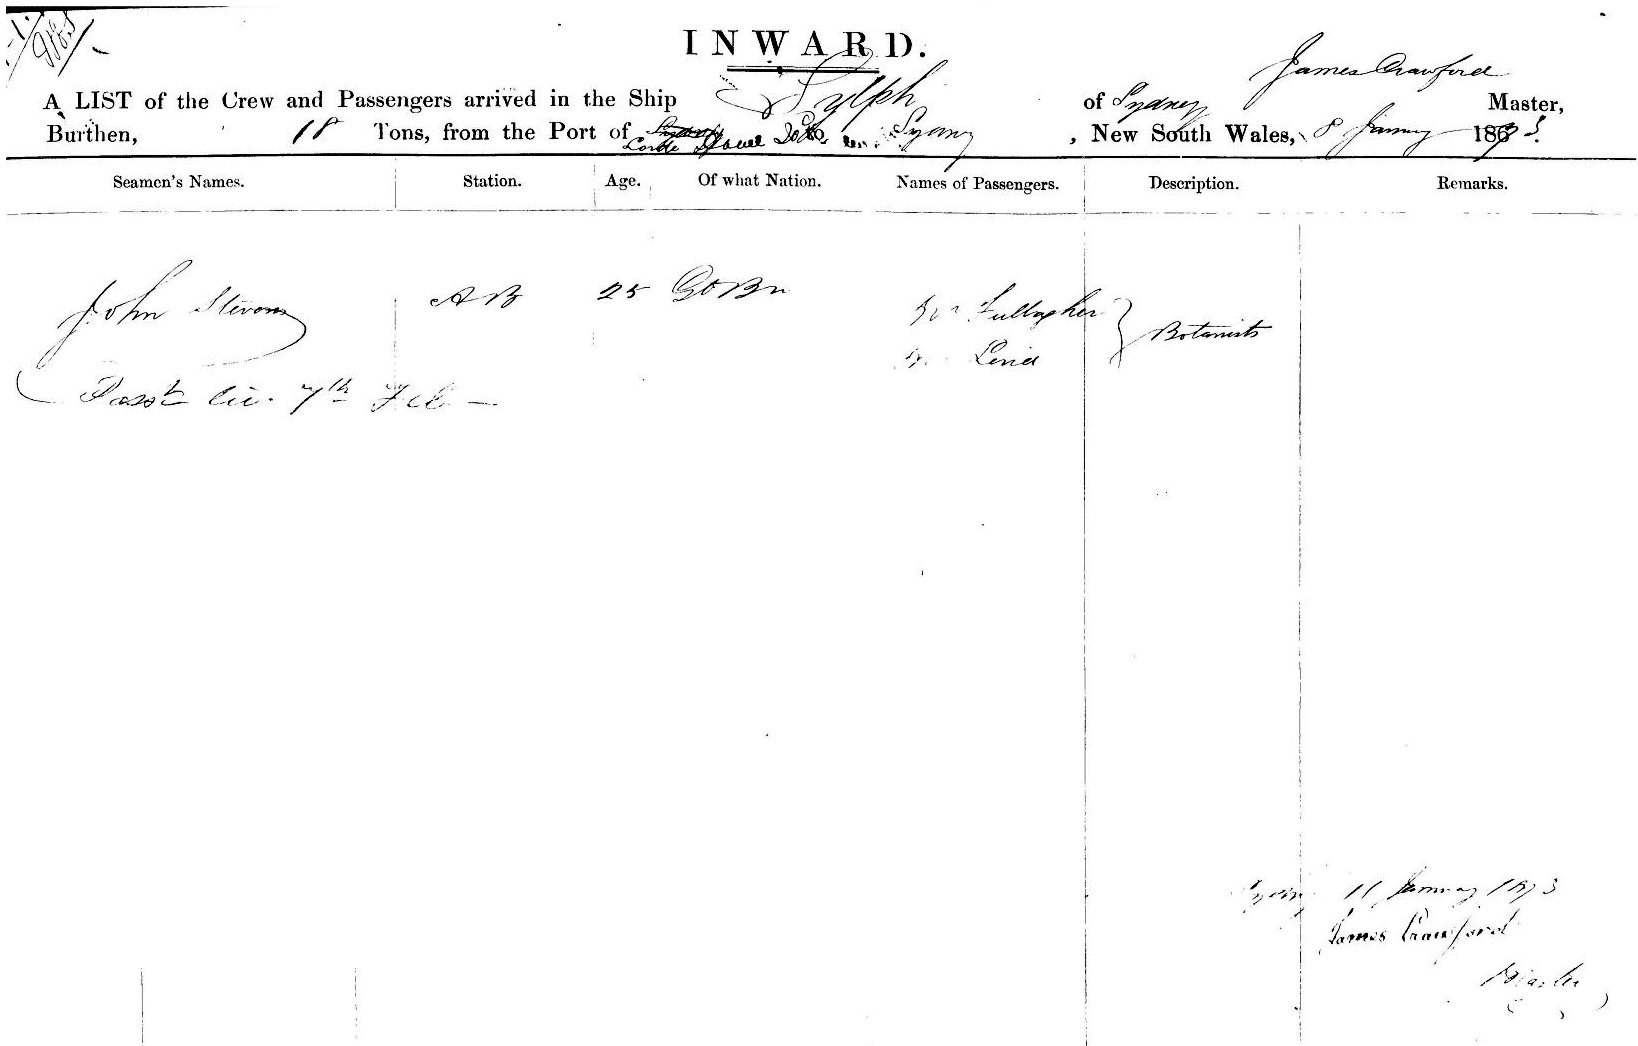 INWARD.
James Crawford
A LIST of the Crew and Passengers arrived in the Ship Sylph of Sydney Master,
Burthen, 18 Tons, from the Port of Sydney Lorde Howe to Sydney, New South Wales, 8 January 1873.
Seamen's Names. Station. Age. Of what Nation. Names of Passengers. Description. Remarks.
John Stevens AB 25 Gt Bn Mr Fullagher } Botanists
Mr Lind
7th Feb
Sydney 11 January 1873
James Crawford
Master